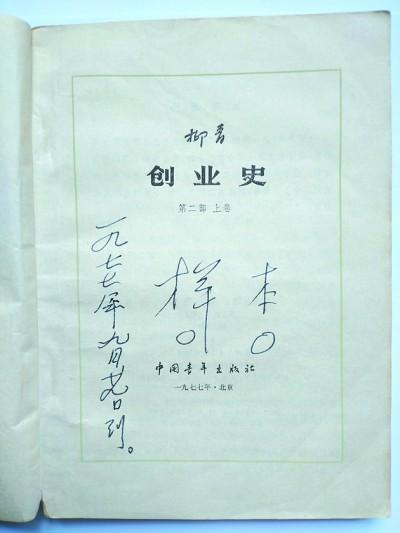 柳青
创业史
第二部 上卷
样本
中国青年出版社
一九七七年·北京
一九七七年九月廿日到。